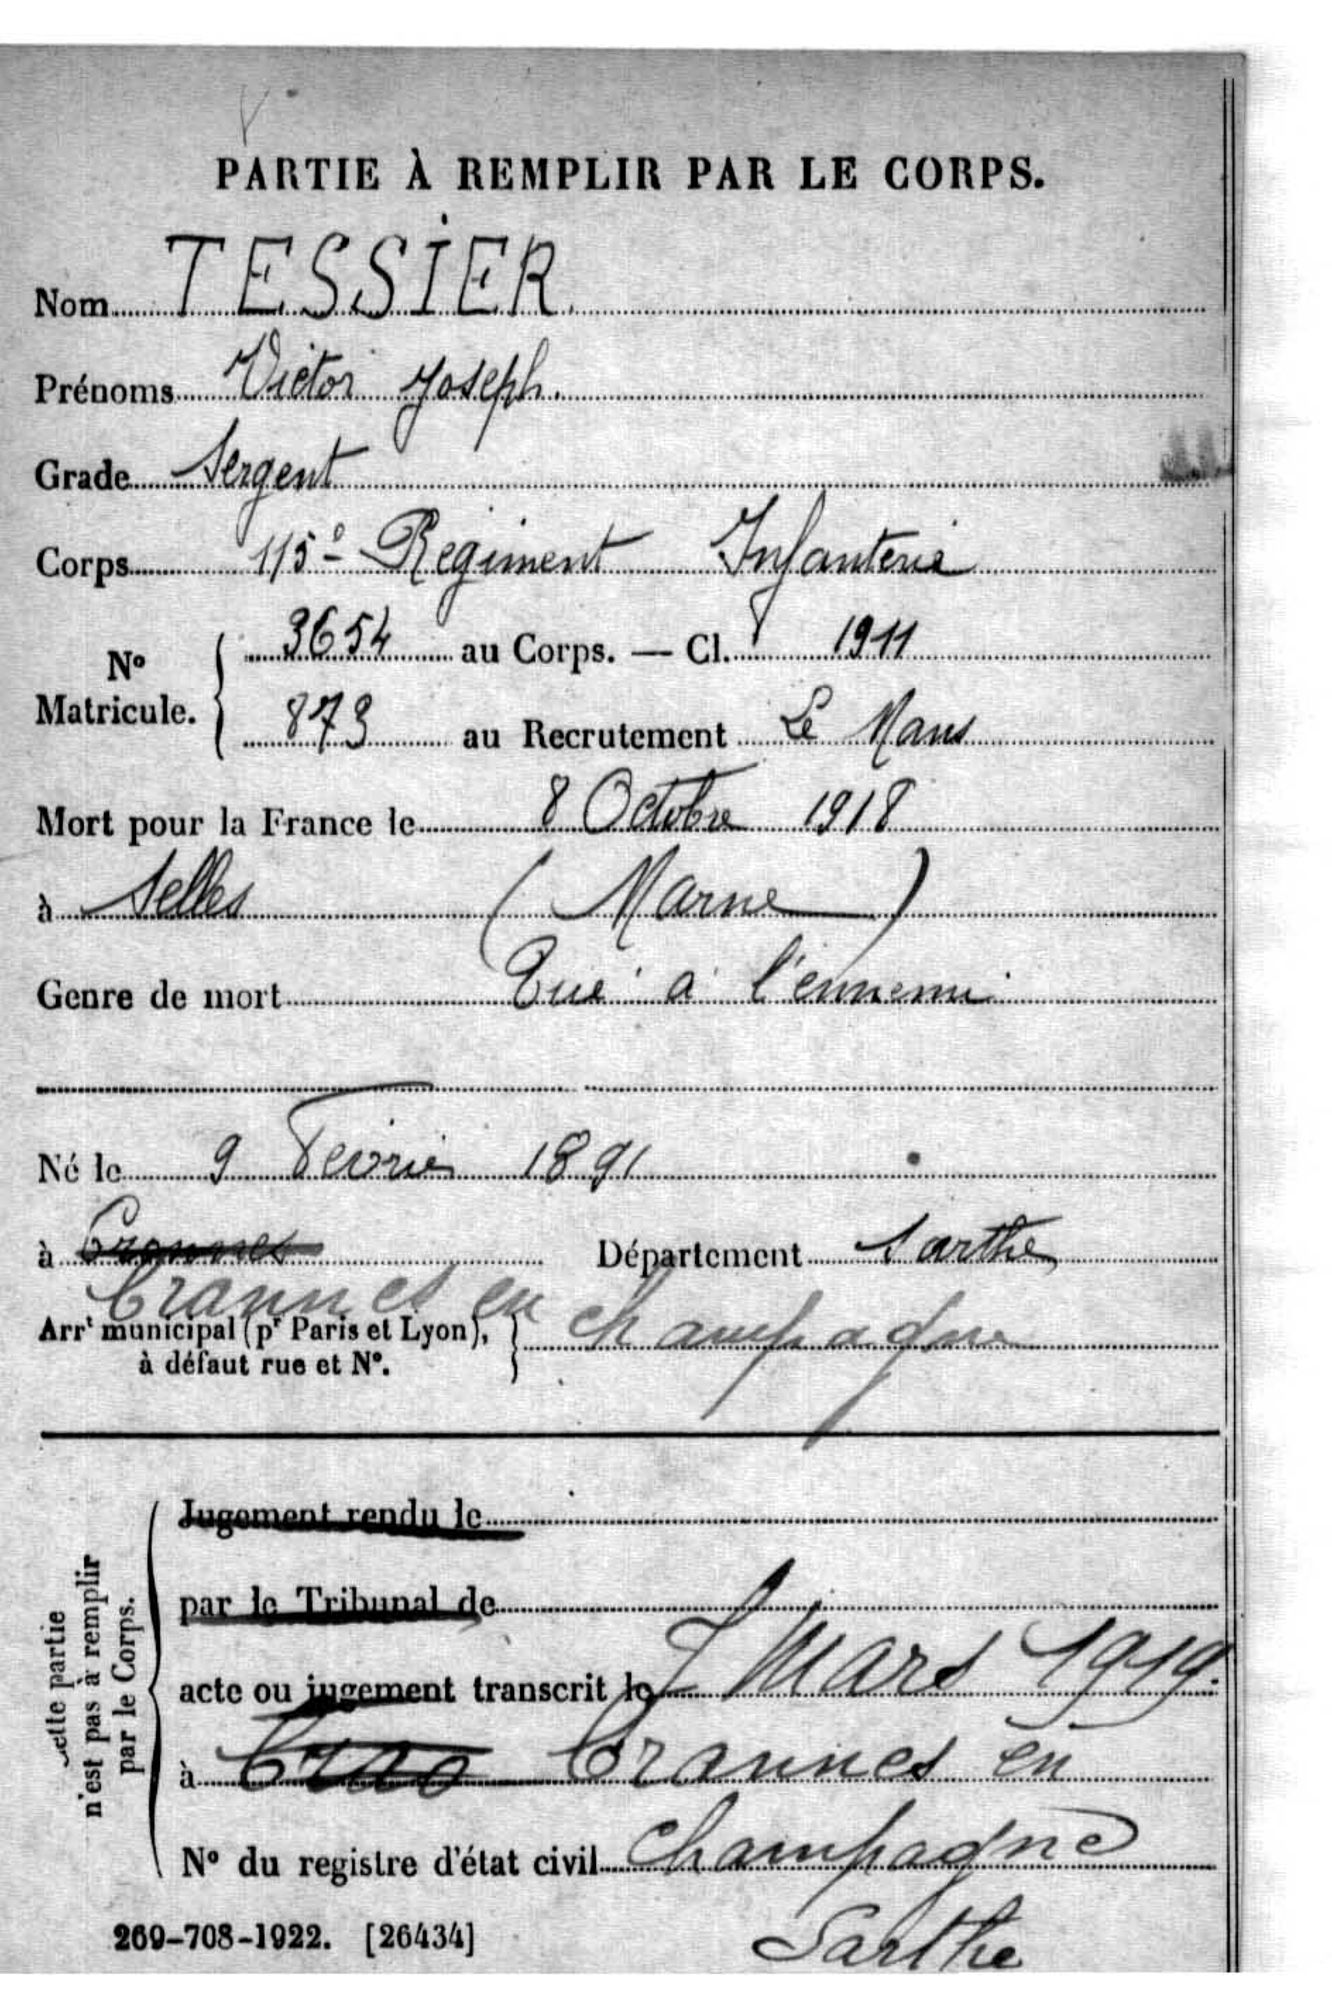 PARTIE À REMPLIR PAR LE CORPS.
Nom TESSIER
Prénoms Victor Joseph.
Grade Sergent
Corps 115e Regiment Infanterie
No Matricule. { 3654 au Corps. — Cl. 1911
873 au Recrutement Le Mans
Mort pour la France le 8 Octobre 1918
à Selles (Marne)
Genre de mort Tué à l'ennemi
Né le 9 Fevrier 1891
à Crannes Département Sarthe
Crannes en
Arrt municipal (pr Paris et Lyon), à défaut rue et No. } champagne
Cette partie n'est pas à remplir par le Corps.
Jugement rendu le
par le Tribunal de
acte ou jugement transcrit le 7 Mars 1919.
à Crannes en
No du registre d'état civil Champagne
269-708-1922. [26434] Sarthe